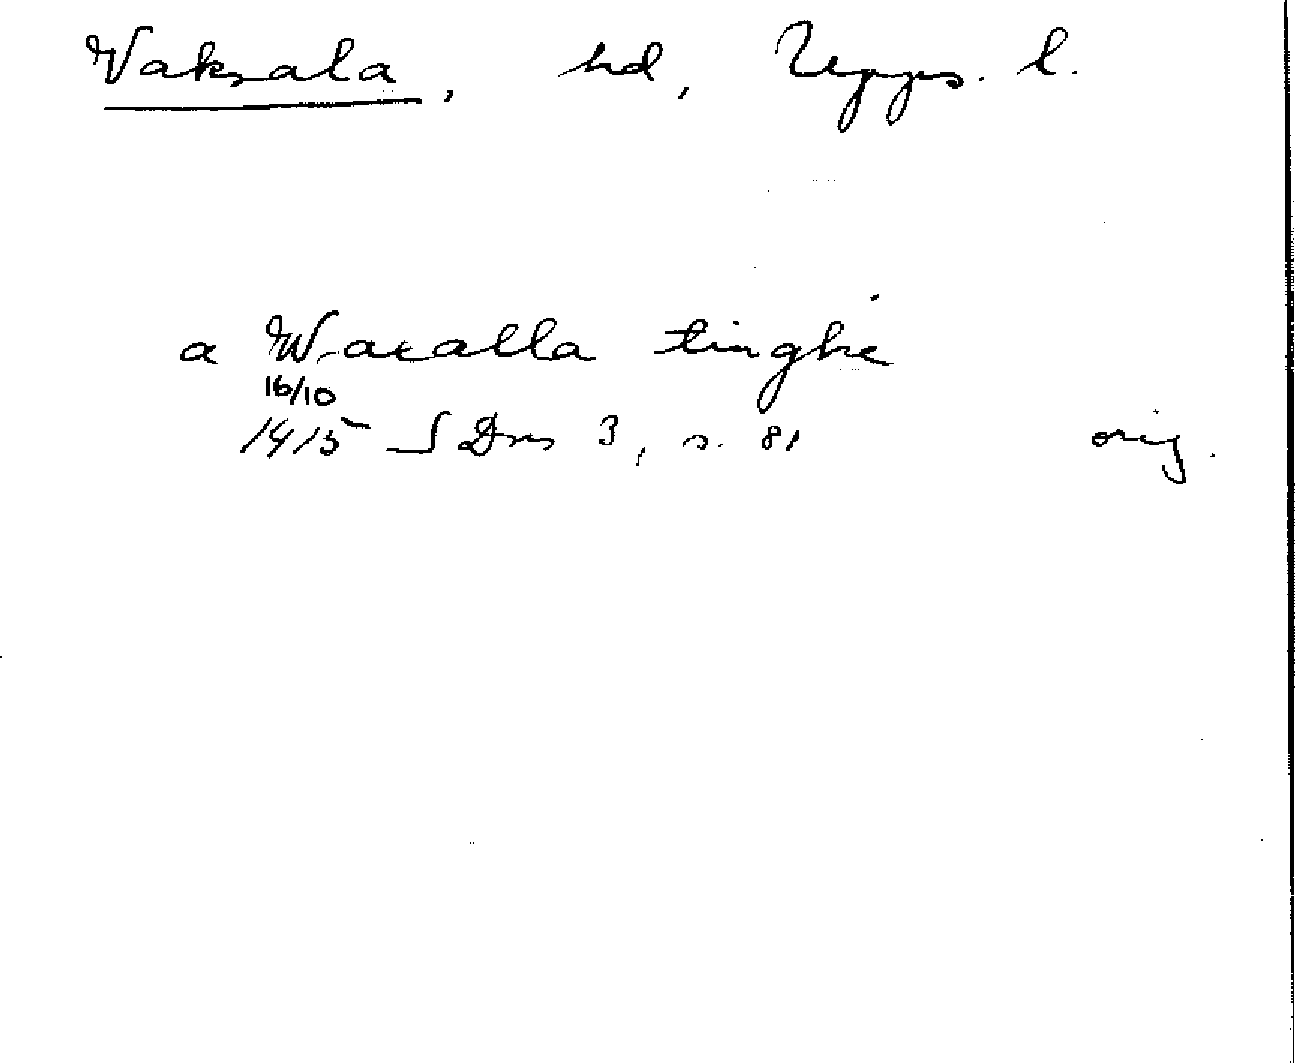 Vaksala, hd, Upps. l.
a Wacalla tinghe
16/10
1415 SDns 3, s. 81 orig.